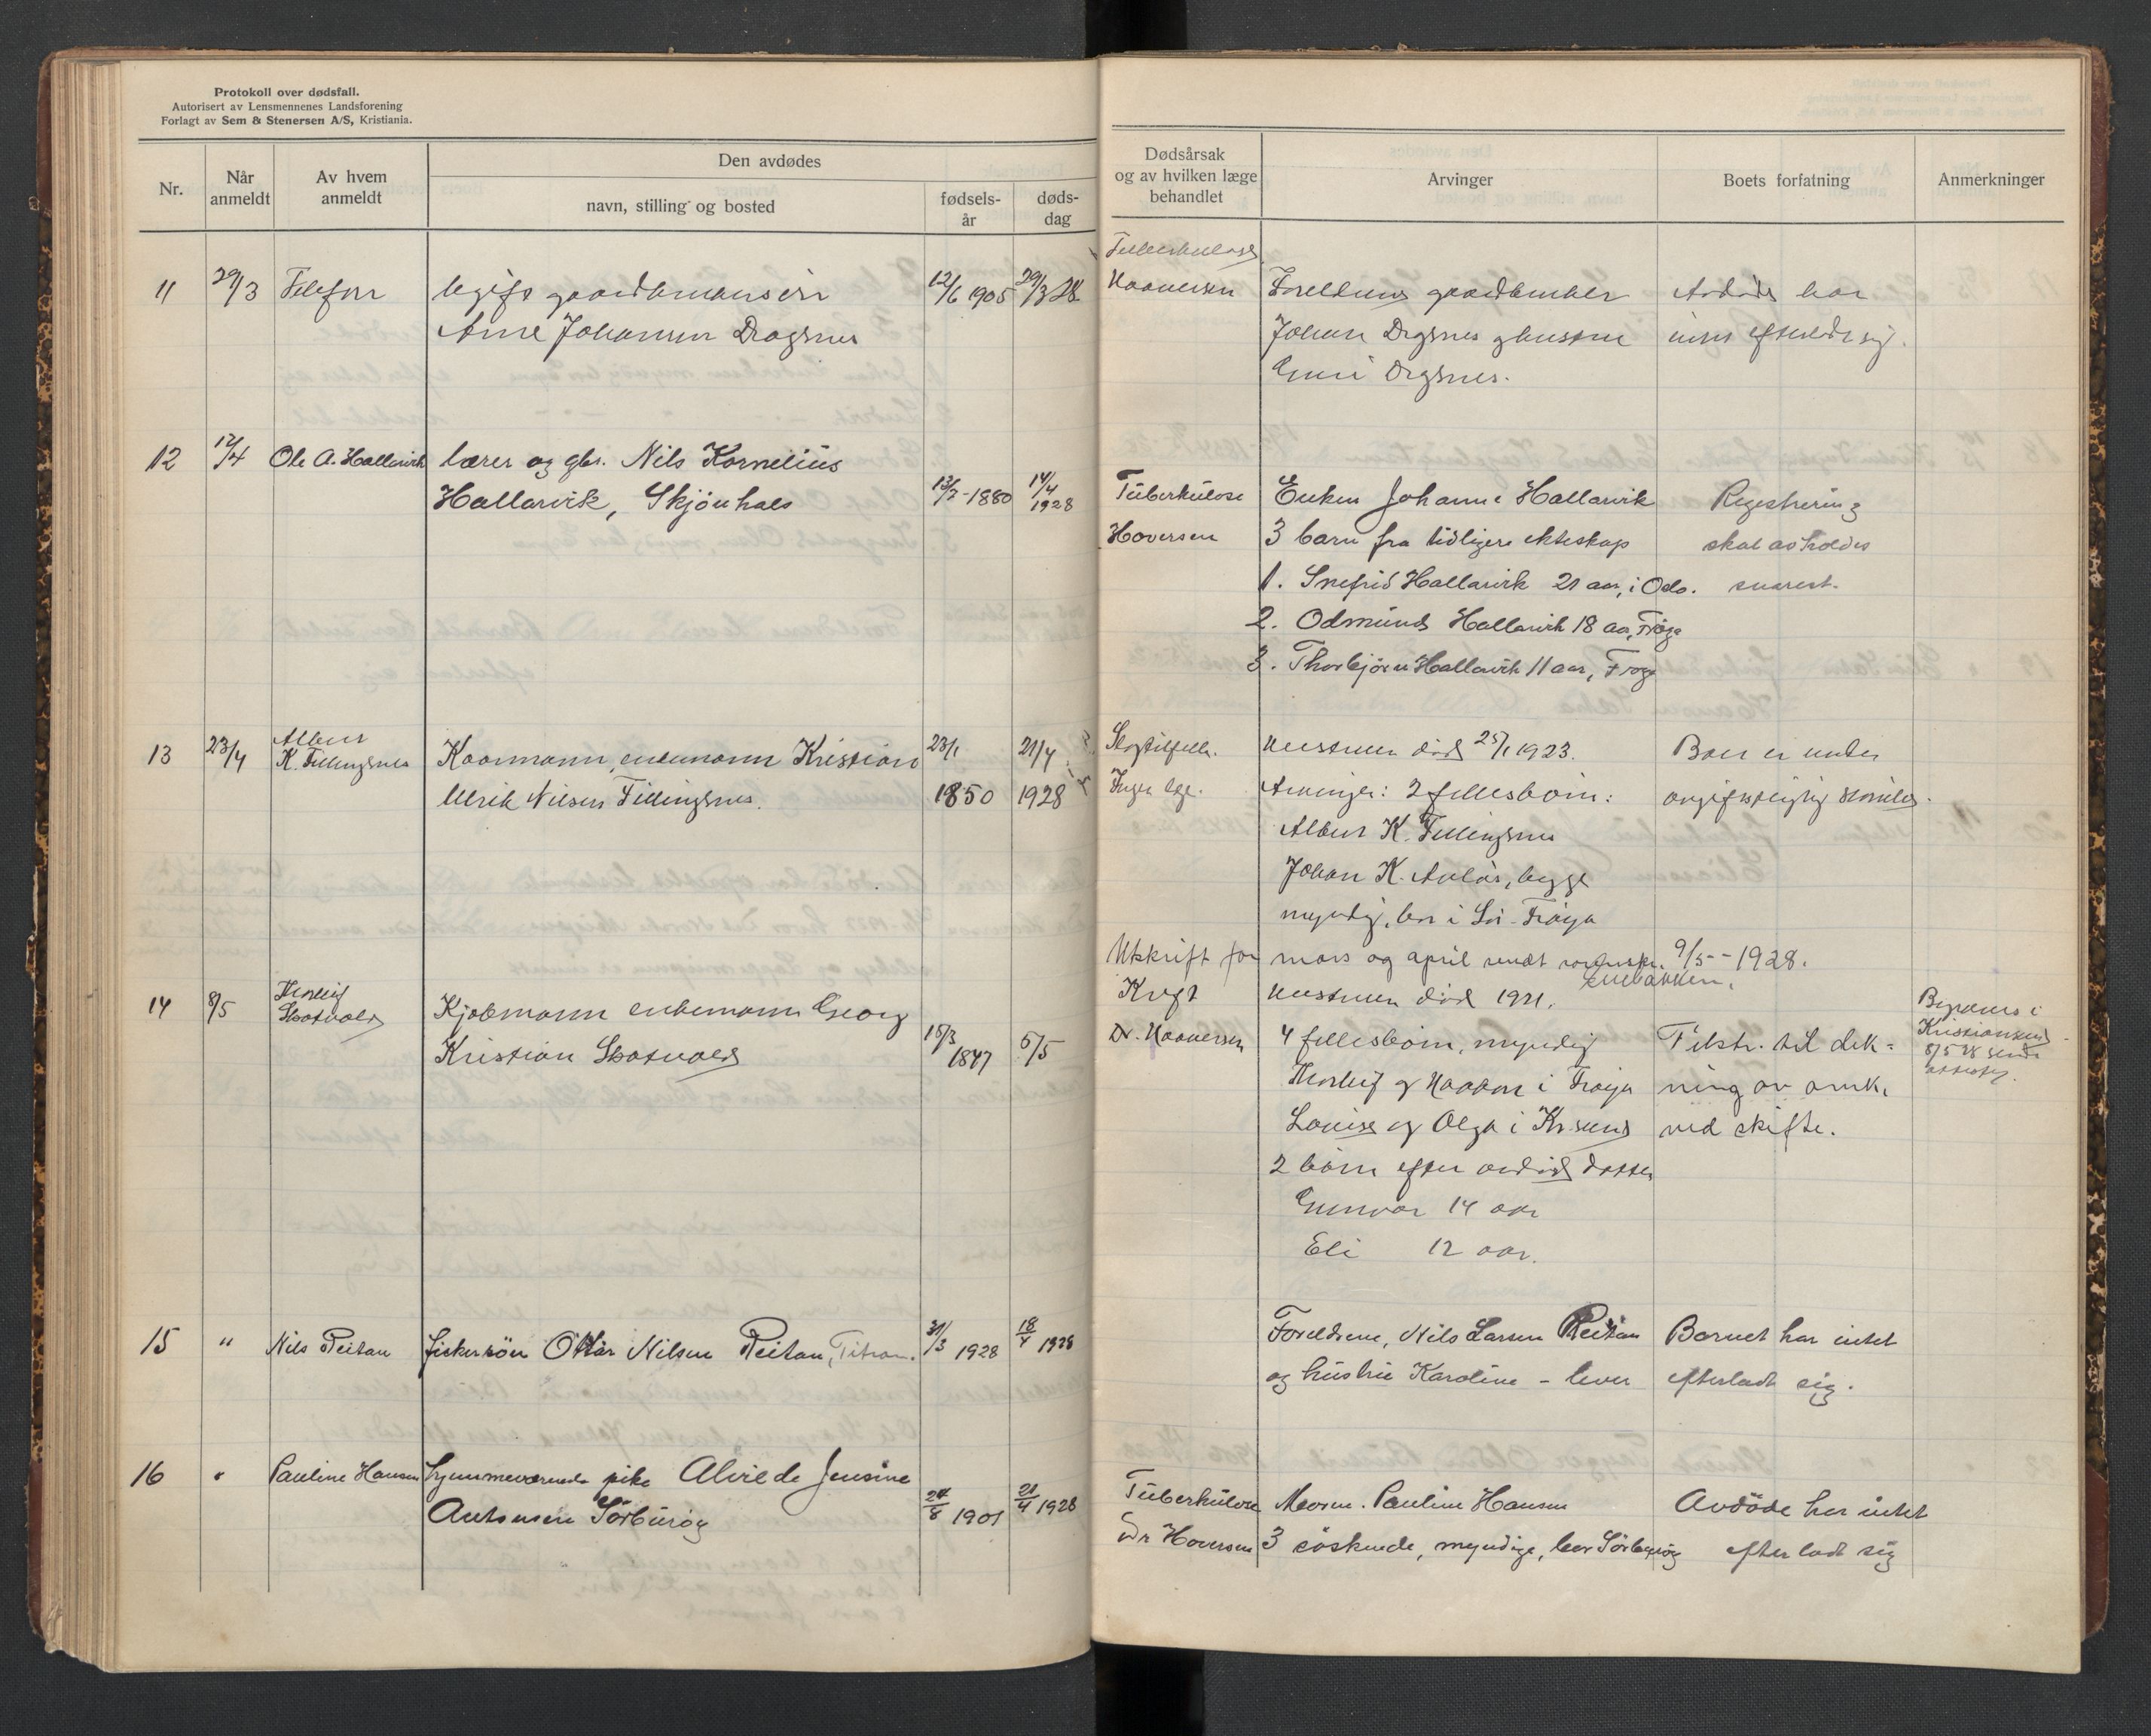 Protokoll over dødsfall.
Autorisert av Lensmennenes Landsforening
Forlagt av Sem & Stenersen A/S, Kristiania.
Nr.
Når anmeldt
Av hvem anmeldt
Den avdødes
navn, stilling og bosted
fødsels-år
døds-dag
Dødsårsak og av hvilken læge behandlet
Arvinger
Boets forfatning
Anmerkninger
11 29/3 Telefon ugift gaardbrukersøn 12/6 1905 29/3 28
Arne Johansen Dragsnes
Tuberkulose
Haaversen
Foreldrene gaardbruker
Johan Dragsnes og hustru
Dragsnes.
Avdøde har
intet efterladt sig.
12 12/4 Ole A. Hallarvik lærer og gbr. Nils Kornelius
Hallarvik, Skjønhals 13/2-1880 14/4 1928
Tuberkulose
Hoversen
Enken Johanne Hallarvik
3 barn fra tidligere ekteskap
1. Snefrid Hallarvik 21 aar, i Oslo.
2. Odmund Hallarvik 18 aar, Frøya
3. Thorbjörn Hallarvik 11 aar, Frøya
Registrering
skal avholdes
snarest.
13 23/4 Albert K. Fillingsnes Kaarmann, enkemann Kristian 23/1 21/4
Ulrik Nilsen Fillingsnes. 1850 1928
Slagtilfelle.
Ingen lege.
Hustruen død 25/1 1923.
Arvinger: 2 fellesbørn:
Albert K. Fillingsnes
Johan K. begge
myndig, bor i Sør-Frøya
Boet er under
Utskrift for mars og april sendt 9/5-1928.
14 8/5 Thorleif Skotvold Kjøbmann enkemann Georg
Kristian Skotvold 15/3 1847 5/5
Kreft
Dr. Haaversen
Hustruen død 1921.
4 fellesbørn, myndig
Thorleif og Haakon i Frøya
Louise og Olga i Kr.sund
2 børn efter avdød datter
Gunvor 14 aar
Eli 12 aar.
Tilstr. til dek-
ning av omk.
ved skifte.
Begraves i
Kristiansund
8/5 28 sendt
15 " Nils Reitan fiskersön Ottar Nilsen Reitan, Titran. 31/3 1928 18/4 1928
Foreldrene, Nils Larsen Reitan
og hustru Karoline - lever
Barnet har intet
efterladt sig.
16 " Pauline Hansen hjemmeværende pike Alvilde Jensine
Antonsen Sørburøy 24/8 1901 21/4 1928
Tuberkulose
Dr Hoversen
Moren. Pauline Hansen
3 söskende, myndige, bor Sörburøy
Avdöde har intet
efterladt sig